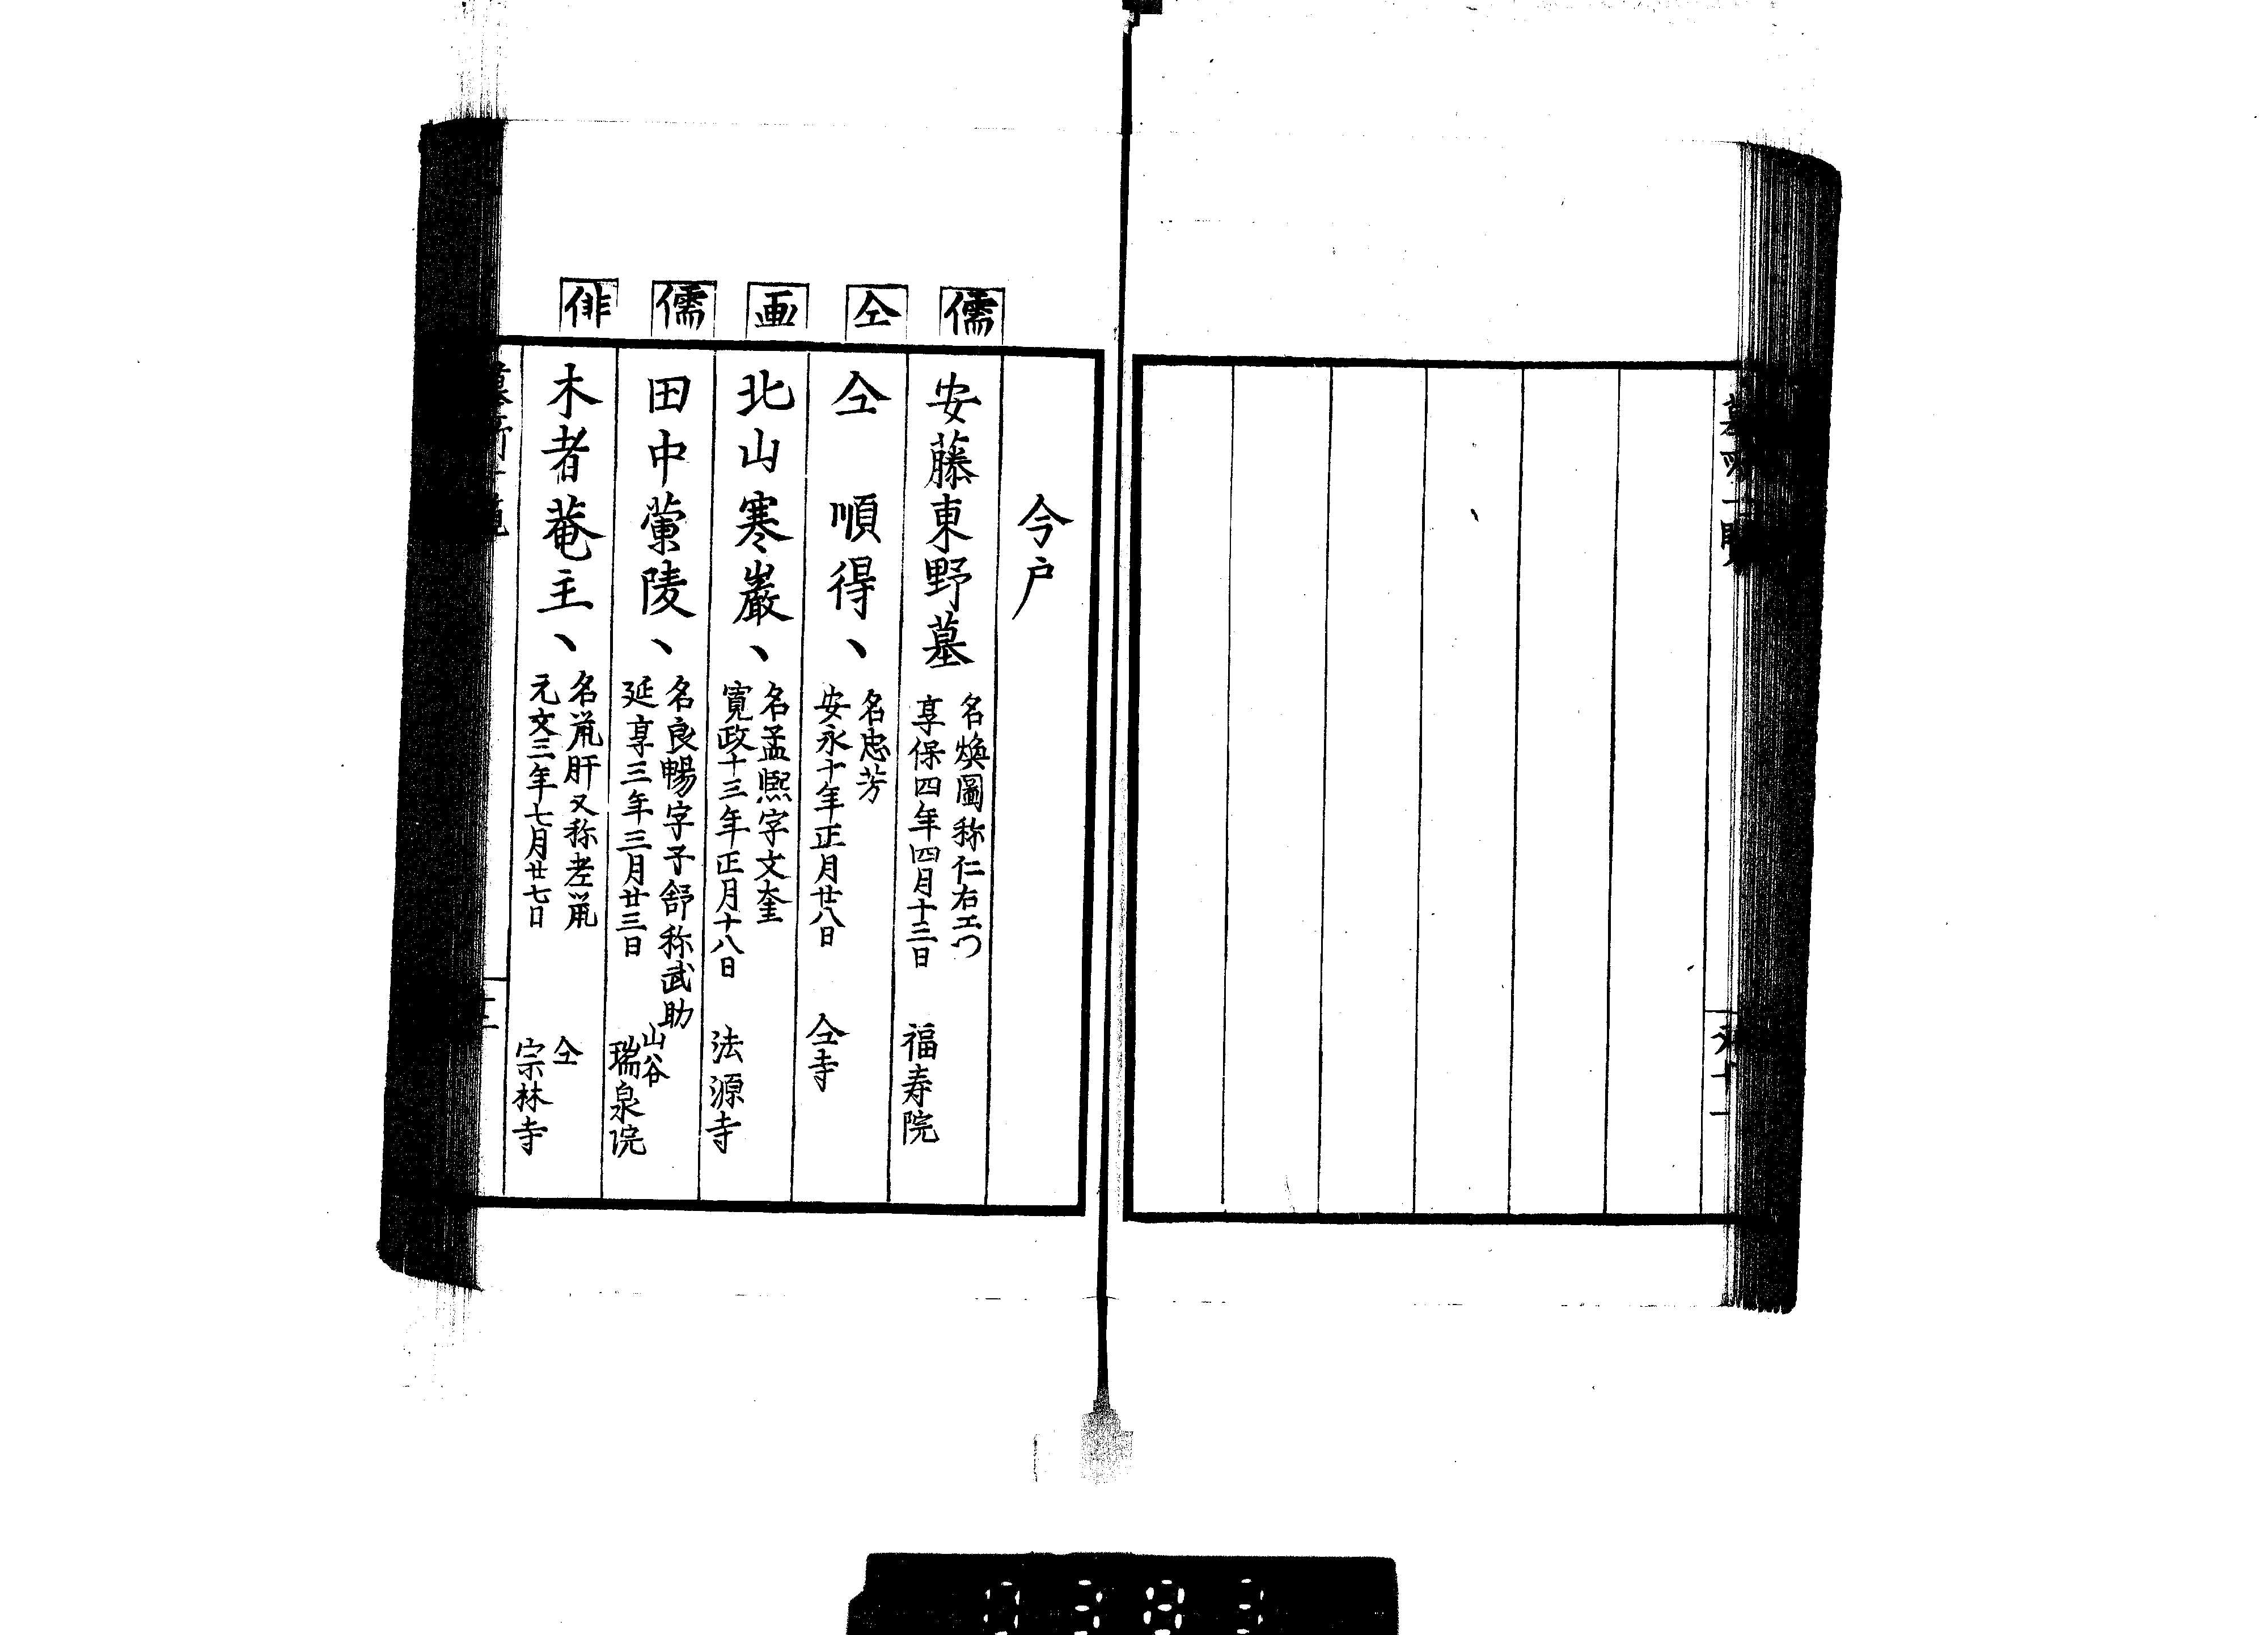 今戸
儒
安藤東野墓
名煥圖称仁右エ门
享保四年四月十三日
福寿院
仝
仝 順得、
名忠芳
安永十年正月廿八日
仝寺
画
北山寒巖、
名孟熙字文奎
寛政十三年正月十八日
法源寺
儒
田中蘭陵、
名良暢字子舒称武助
延享三年三月廿三日
山谷
瑞泉院
俳
木者菴主、
名鼠肝又称老鼠
元文三年七月廿七日
仝
宗林寺